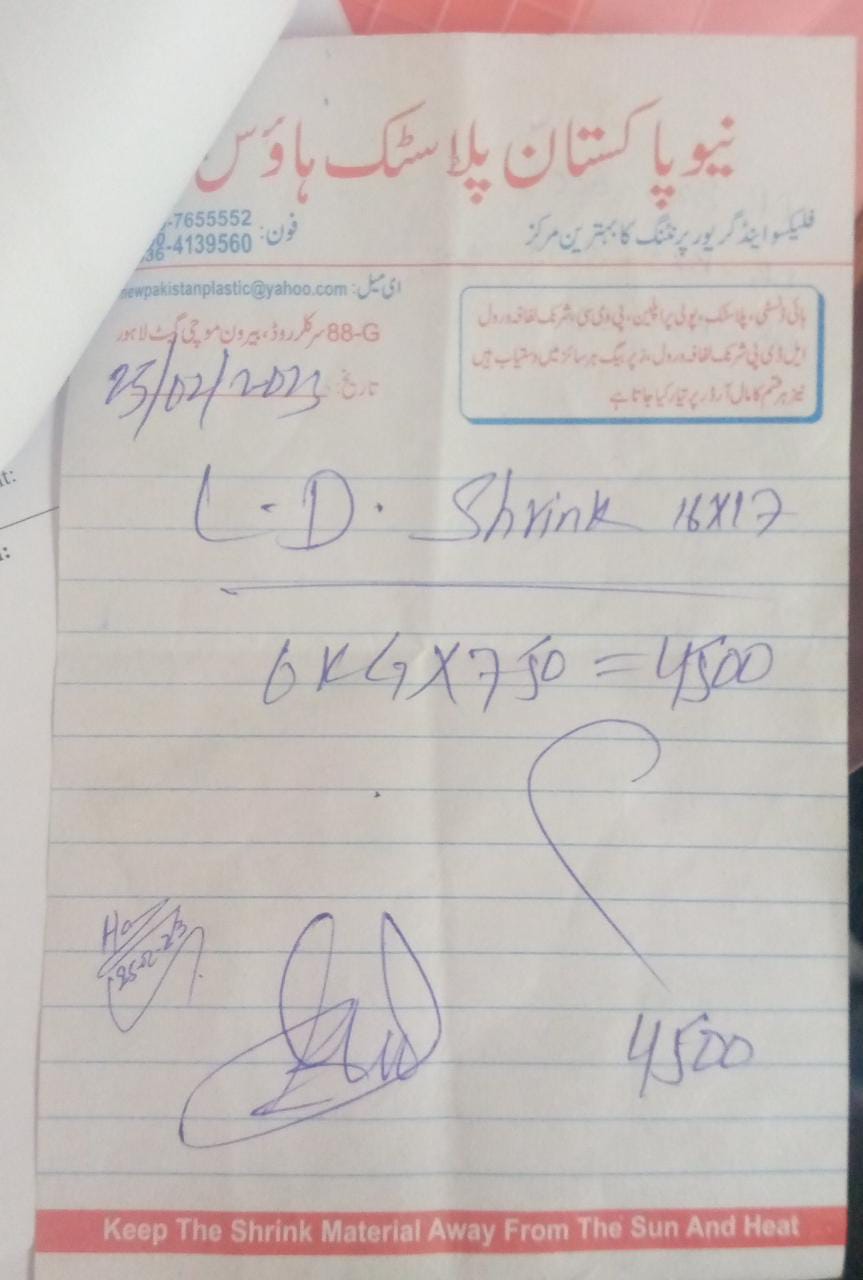 نیو پاکستان پلاسٹک ہاؤس
فلیکسو اینڈ گریور پرنٹنگ کا بہترین مرکز
فون: -7655552
36-4139560
ای میل: newpakistanplastic@yahoo.com
88-G سرکلر روڈ، بیرون موچی گیٹ لاہور
ہائی ڈنسٹی، پلاسٹک، پولی پراپلین، پی وی سی، شرنک لفافہ و رول
ایل ڈی پی شرنک لفافہ و رول، زپر بیگ ہر سائز میں دستیاب ہیں
نیز ہر قسم کا مال آرڈر پر تیار کیا جاتا ہے
تاریخ: 25/02/2023
L.D. Shrink 16X17
6KGX750=4500
25-02-23
4500
Keep The Shrink Material Away From The Sun And Heat